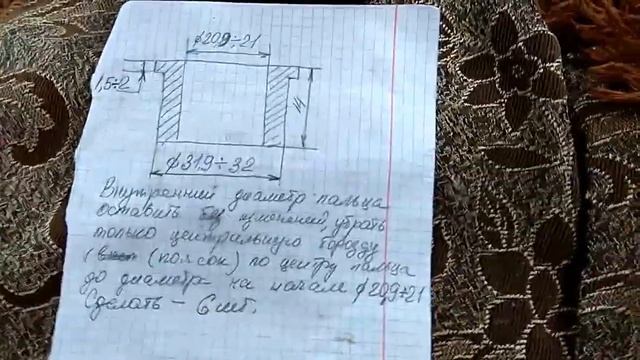 ϕ20,9÷21
1,5÷2
ϕ31,9÷32
Внутренний диаметр пальца
оставить без изменений, убрать
только центральную борозду
(поясок) по центру пальца
до диаметра на начале ϕ20,9÷21
Сделать – 6 шт.